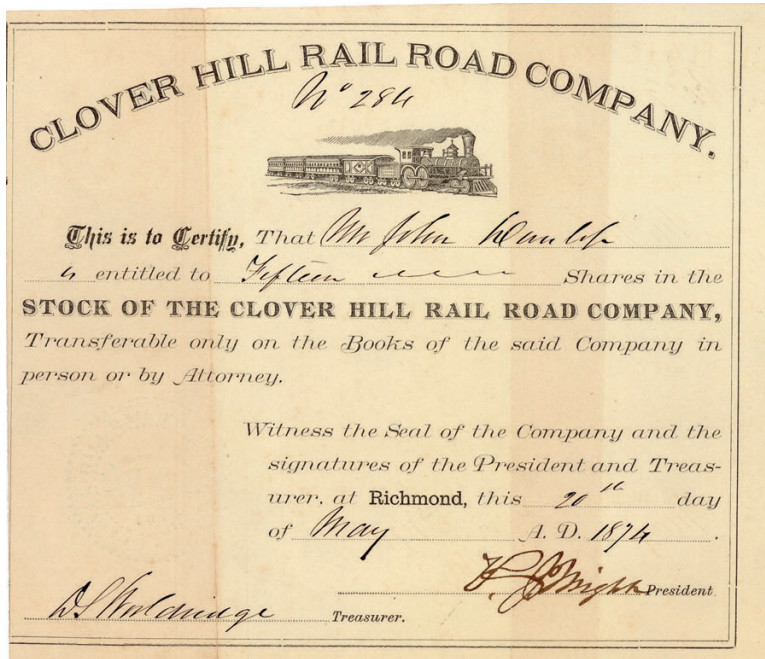 CLOVER HILL RAIL ROAD COMPANY.
No 284
This is to Certify, That Mr John Dunlop
is entitled to Fifteen Shares in the
STOCK OF THE CLOVER HILL RAIL ROAD COMPANY,
Transferable only on the Books of the said Company in
person or by Attorney.
Witness the Seal of the Company and the
signatures of the President and Treas-
urer, at Richmond, this 20th day
of May A. D. 1874.
Wright President
D S Wooldridge Treasurer.